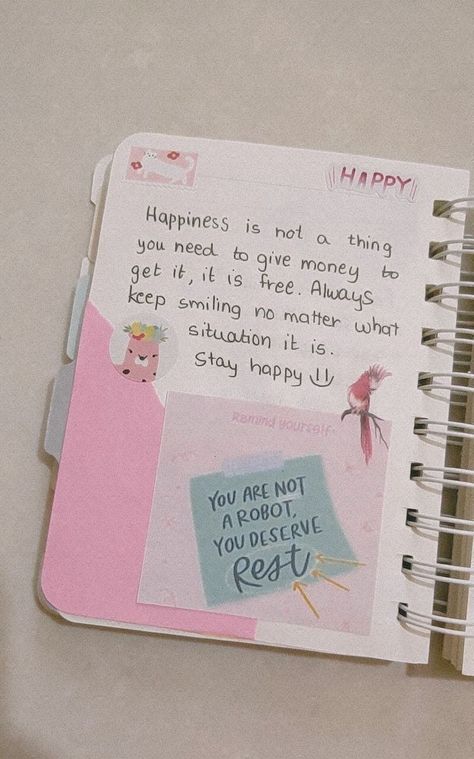 HAPPY
Happiness is not a thing
you need to give money to
get it, it is free. Always
keep smiling no matter what
situation it is.
Stay happy
Remind yourself
YOU ARE NOT
A ROBOT,
YOU DESERVE
Rest